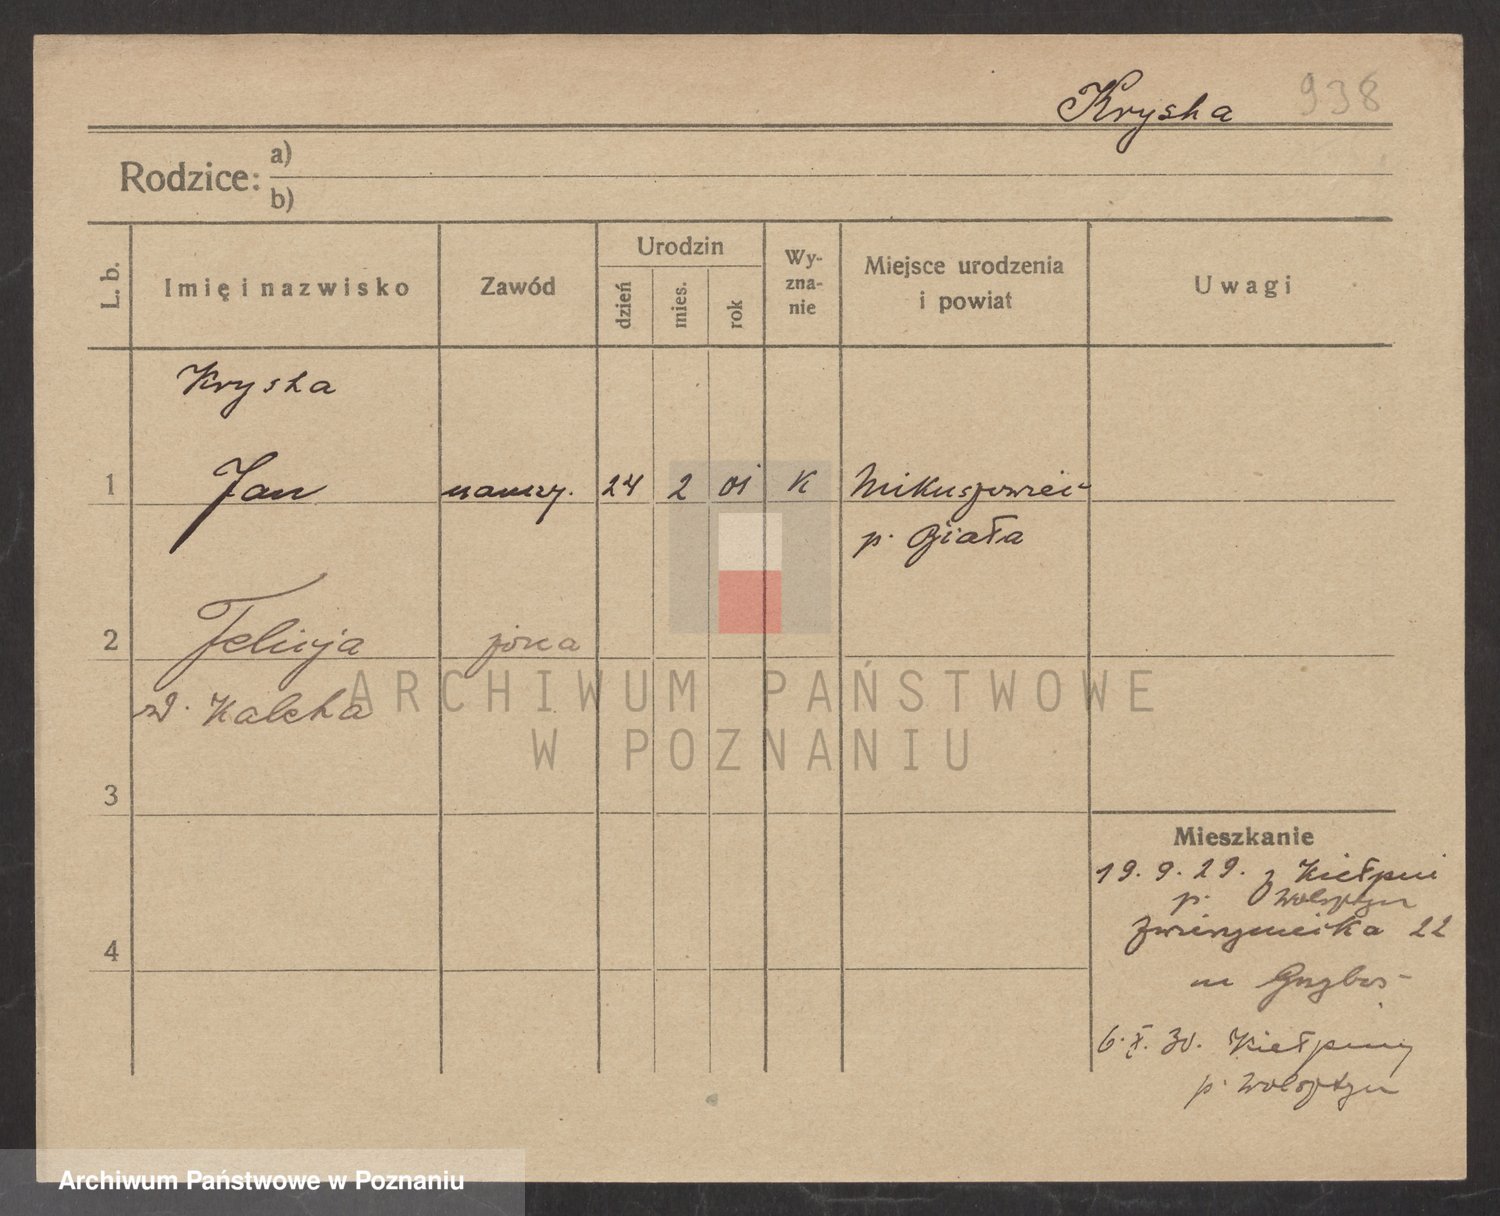 Kryska 938
Rodzice: a)
b)
L. b. Imię i nazwisko Zawód Urodzin dzień mies. rok Wy-zna-nie Miejsce urodzenia i powiat Uwagi
Kryska
1 Jan nauczy. 24 2 01 K Mikuszowice
p. Biała
2 Felicja żona
z d. Kalska
3
Mieszkanie
19. 9. 29. z Kiełpin
p. Wolsztyn
4 Zwierzyniecka 22
m
6. X. 30. Kiełpiny
p. Wolsztyn
ARCHIWUM PAŃSTWOWE
W POZNANIU
Archiwum Państwowe w Poznaniu